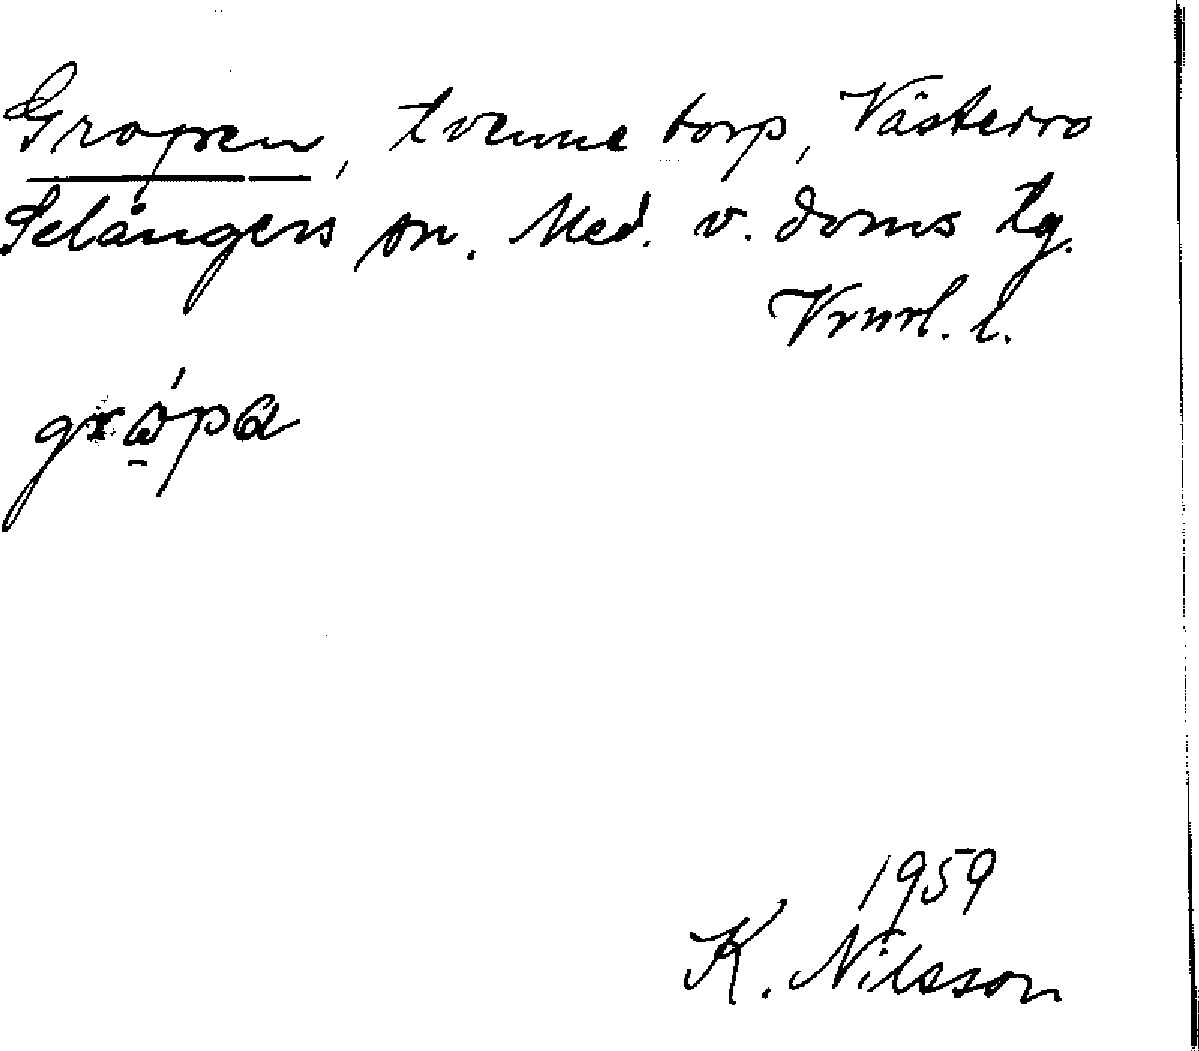 Gropen, tvenne torp, Västerro
Selångers sn. Med. v. doms tg.
Vrnrl. l.
grɷ̠́pa
1959
K. Nilsson